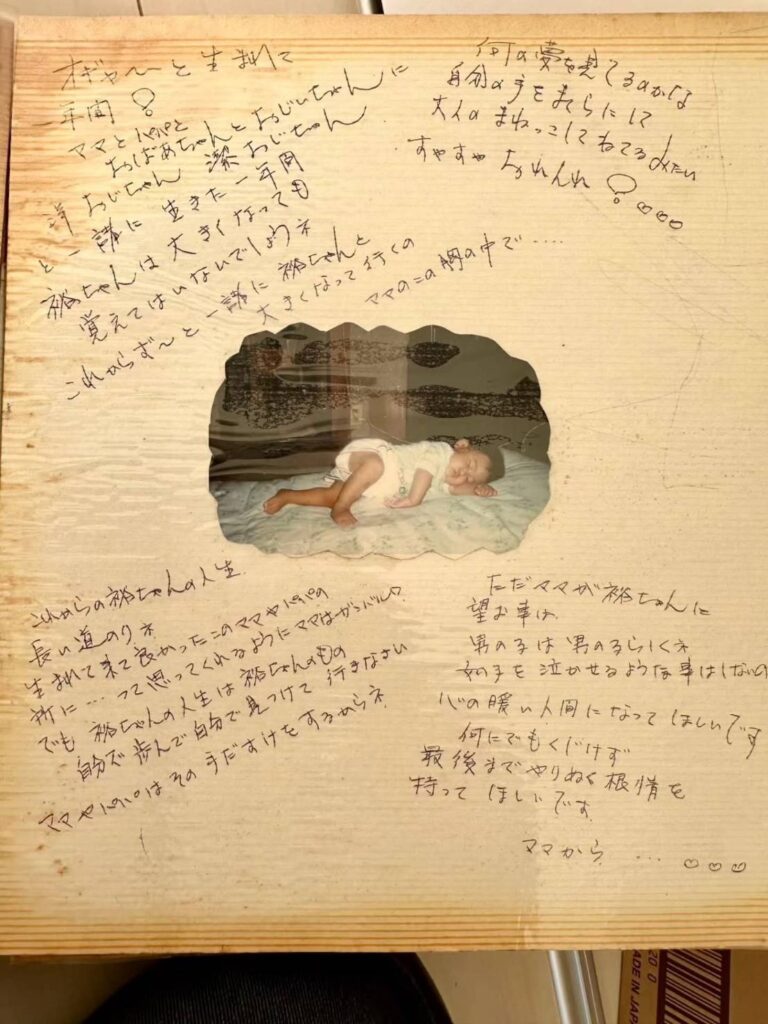 オギャ〜と生まれて
一年間
ママとパパと
おばあちゃんとおじいちゃんに
洋おじちゃん 潔おじちゃん
と一諸に生きた一年間
裕ちゃんは大きくなっても
覚えてはいないでしょうネ
これからず〜と一諸に裕ちゃんと
大きくなって行くの
ママのこの胸の中で‥‥
何の夢を見てるのかな
自分の手をまくらにして
大人のまねっこしてねてるみたい
すやすや おねんね
これからの裕ちゃんの人生
長い道のりネ
生まれて来て良かったこのママやパパの
所に…って思ってくれるようにママはガンバル
でも裕ちゃんの人生は裕ちゃんのもの
自分で歩んで自分で見つけて行きなさい
ママやパパはその手だすけをするからネ
ただママが裕ちゃんに
望む事は
男の子は男の子らしくネ
女の子を泣かせるような事はしないの
心の暖い人間になってほしいです
何にでもくじけず
最後までやりぬく根情を
持ってほしいです
ママから …
20 0
MADE IN JAPAN